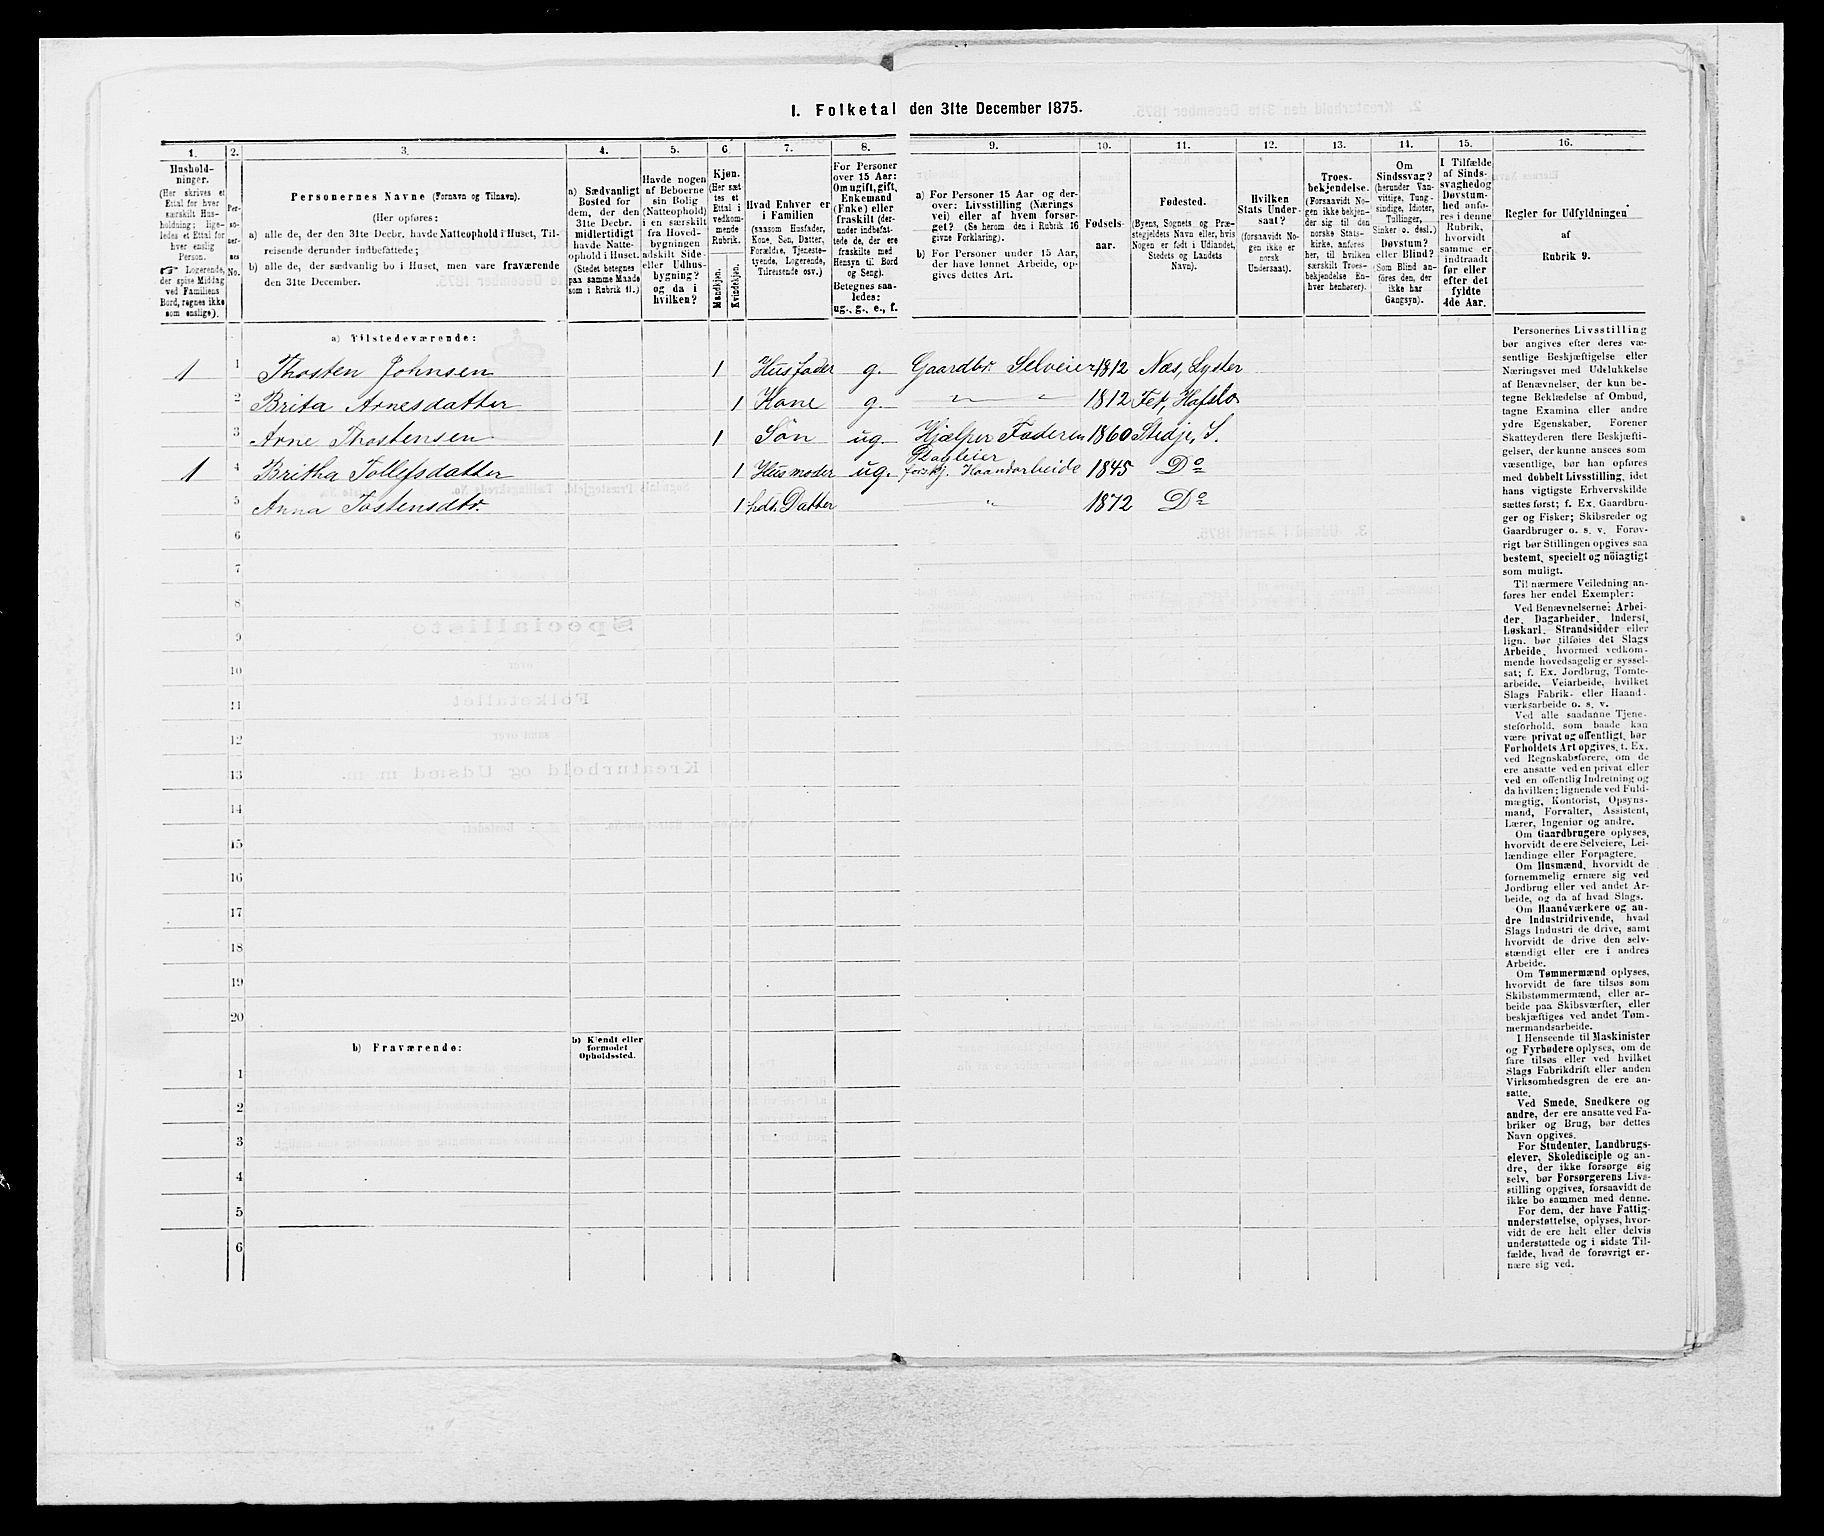 I. Folketal den 31te December 1875.
1. 2. 3. 4. 5. 6. 7. 8. 9. 10. 11. 12. 13. 14. 15. 16.
Hushold-
ninger.
(Her skrives et
Ettal for hver
særskilt Hus-
holdning; lige-
ledes et Ettal for
hver enslig
Person.
☞ Logerende,
der spise Middag
ved Familiens
Bord, regnes ikke
som enslige).
Per-
so-
ner-
nes
No.
Personernes Navne (Fornavn og Tilnavn).
(Her opføres:
a) alle de, der den 31te Decbr. havde Natteophold i Huset, Til-
reisende derunder indbefattede;
b) alle de, der sædvanlig bo i Huset, men vare fraværende
den 31te December.
a) Sædvanligt
Bosted for
dem, der den
31te Decbr.
midlertidigt
havde Natte-
ophold i Huset.
(Stedet betegnes
paa samme Maade
som i Rubrik 11.)
Havde nogen
af Beboerne
sin Bolig
(Natteophold)
i en særskilt
fra Hoved-
bygningen
adskilt Side-
eller Udhus-
bygning?
og da i
hvilken?
Kjøn.
(Her sæt-
tes et
Ettal i
vedkom-
mende
Rubrik.
Mandkjøn.
Kvindekjøn.
Hvad Enhver er
i Familien
(saasom Husfader,
Kone, Søn, Datter,
Forældre, Tjeneste-
tyende, Logerende,
Tilreisende osv.)
For Personer
over 15 Aar:
Om ugift, gift,
Enkemand
(Enke) eller
fraskilt (der-
under indbefat-
tede de, der ere
fraskilte med
Hensyn til Bord
og Seng).
Betegnes saa-
ledes:
ug., g., e., f.
a) For Personer 15 Aar og der-
over: Livsstilling (Nærings-
vei) eller af hvem forsør-
get? (Se herom den i Rubrik 16
givne Forklaring).
b) For Personer under 15 Aar,
der have lønnet Arbeide, op-
gives dettes Art.
Fødsels-
aar.
Fødested.
(Byens, Sognets og Præ-
stegjeldets Navn eller, hvis
Nogen er født i Udlandet,
Stedets og Landets
Navn).
Hvilken
Stats Under-
saat?
(forsaavidt No-
gen ikke er
norsk
Undersaat).
Troes-
bekjendelse.
(Forsaavidt No-
gen ikke bekjen-
der sig til den
norske Stats-
kirke, anføres
her, til hvilken
særskilt Troes-
bekjendelse En-
hver henhører).
Om
Sindssvag?
(herunder Van-
vittige, Tung-
sindige, Idioter,
Tullinger,
Sinker o. desl.)
Døvstum?
eller Blind?
(Som Blind an-
føres den, der
ikke har
Gangsyn).
I Tilfælde
af Sinds-
svaghedog
Døvstum-
hed anfø-
res i denne
Rubrik,
hvorvidt
samme er
indtraadt
før eller
efter det
fyldte
4de Aar.
Regler for Udfyldningen
af
Rubrik 9.
a) Tilstedeværende:
1 1 Thosten Johnsen 1 Husfader g. Gaardbr. Selveier 1812 Næs, Lyster
2 Brita Arnesdatter 1 Kone g. " " 1812 Fet, Hafslo
3 Arne Thostensen 1 Søn ug. Hjælper Faderen 1860 Stedje, S.
Pladseier
1 4 Britha Tollefsdatter 1 Husmoder ug. forskj. Haandarbeide 1845 Do
5 Anna Tostensdtr. 1 hds. Datter " 1872 Do
6
7
8
9
10
11
12
13
14
15
16
17
18
19
20
b) Fraværende:
b) Kjendt eller
formodet
Opholdssted.
1
2
3
4
5
6
Personernes Livsstilling
bør angives efter deres væ-
sentlige Beskjæftigelse eller
Næringsvei med Udelukkelse
af Benævnelser, der kun be-
tegne Beklædelse af Ombud,
tagne Examina eller andre
ydre Egenskaber. Forener
Skatteyderen flere Beskjæfti-
gelser, der kunne ansees som
væsentlige, bør han opføres
med dobbelt Livsstilling, idet
hans vigtigste Erhvervskilde
sættes først; f. Ex. Gaardbru-
ger og Fisker; Skibsreder og
Gaardbruger o. s. v. Forøv-
rigt bør Stillingen opgives saa
bestemt, specielt og nöiagtigt
som muligt.
Til nærmere Veiledning an-
føres her endel Exempler:
Ved Benævnelserne: Arbei-
der, Dagarbeider, Inderst,
Løskarl, Strandsidder eller
lign. bør tilføies det Slags
Arbeide, hvormed vedkom-
mende hovedsagelig er syssel-
sat; f. Ex. Jordbrug, Tomte-
arbeide, Veiarbeide, hvilket
Slags Fabrik- eller Haand-
værksarbeide o. s. v.
Ved alle saadanne Tjene-
steforhold, som baade kan
være privat og offentligt, bør
Forholdets Art opgives, t. Ex.
ved Regnskabsførere, om de
ere ansatte ved en privat eller
ved en offentlig Indretning og
da hvilken; lignende ved Fuld-
mægtig, Kontorist, Opsyns-
mand, Forvalter, Assistent,
Lærer, Ingeniør og andre.
Om Gaardbrugere oplyses,
hvorvidt de ere Selveiere, Lei-
lændinge eller Forpagtere.
Om Husmænd, hvorvidt de
fornemmelig ernære sig ved
Jordbrug eller ved andet Ar-
beide, og da af hvad Slags.
Om Haandværkere og an-
dre Industridrivende, hvad
Slags Industri de drive, samt
hvorvidt de drive den selv-
stændigt eller ere i andres
Arbeide.
Om Tømmermænd oplyses,
hvorvidt de fare tilsøs som
Skibstømmermænd, eller ar-
beide paa Skibsværfter, eller
beskjæftiges ved andet Tøm-
mermandsarbeide.
I Henseende til Maskinister
og Fyrbødere oplyses, om de
fare tilsøs eller ved hvilket
Slags Fabrikdrift eller anden
Virksomhedsgren de ere an-
satte.
Ved Smede, Snedkere og
andre, der ere ansatte ved Fa-
briker og Brug, bør dettes
Navn opgives.
For Studenter, Landbrugs-
elever, Skoledisciple og an-
dre, der ikke forsørge sig
selv, bør Forsørgerens Livs-
stilling opgives, forsaavidt de
ikke bo sammen med denne.
For dem, der have Fattig-
understøttelse, oplyses, hvor-
vidt de ere helt eller delvis
understøttede og i sidste Til-
fælde, hvad de forøvrigt er-
nære sig ved.